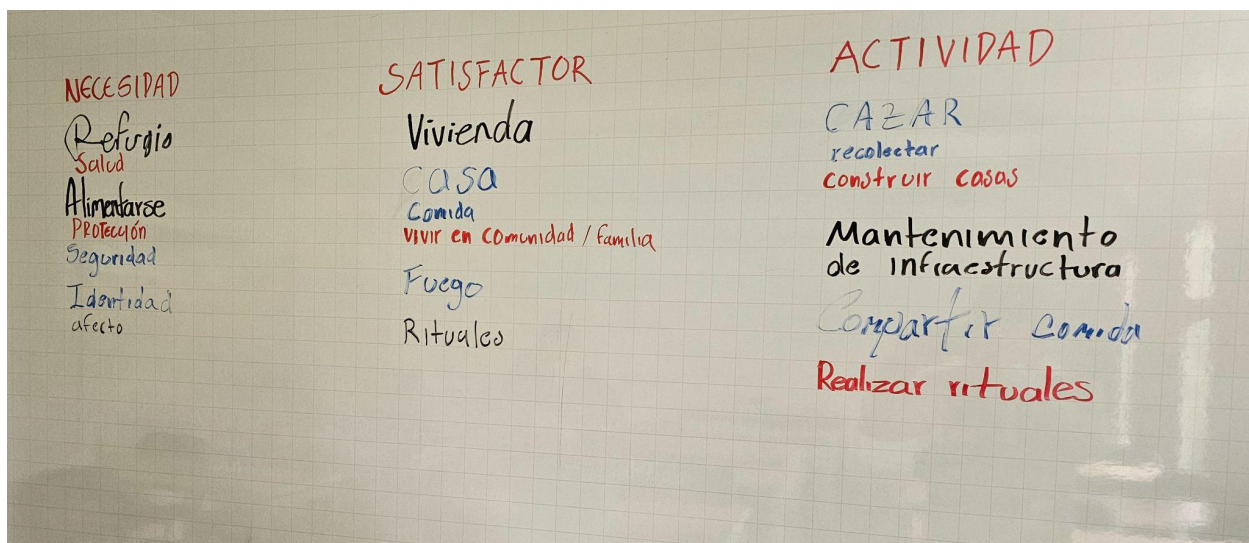 NECESIDAD
Refugio
Salud
Alimentarse
PROTECCIÓN
Seguridad
Identidad
afecto
SATISFACTOR
Vivienda
CASA
Comida
vivir en comunidad / familia
Fuego
Rituales
ACTIVIDAD
CAZAR
recolectar
construir casas
Mantenimiento
de infraestructura
Compartir comida
Realizar rituales